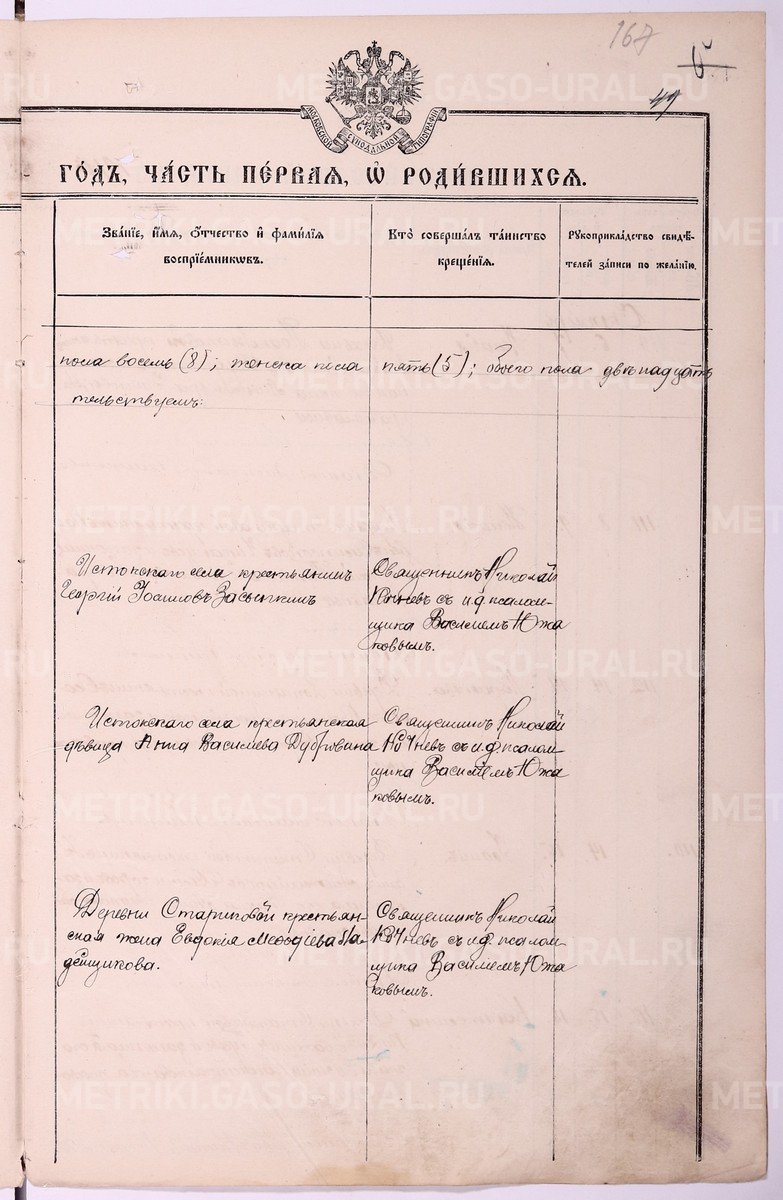 167
49
МОСКОВСКОЙ СѴНОДАЛЬНОЙ ТИПОГРАФІИ
ГО́ДЪ, ЧА́СТЬ ПЕ́РВАЯ, Ѡ҆ РОДИ́ВШИХСЯ.
Зва́нїе, и҆́мя, ѻ҆́тчество и҆ фами́лїя
воспрїе́мникωвъ.
Кто̀ соверша́лъ та́инство
креще́нїя.
Рꙋкоприкла́дство свидѣ́-
телей за́писи по жела́нїю.
пола восемь (8); женска пола пять (5); обоего пола двѣнадцать
тельствуемъ:
Истокскаго села крестьянинъ
Георгій Іоакимовъ Засыпкинъ
Священникъ Николай
съ и.д. псалом-
щика Василіемъ Южа
ковымъ.
Истокскаго села крестьянская
дѣвица Анна Васильева Дубровина
Священникъ Николай
съ и.д. псалом-
щика Василіемъ Южа
ковымъ.
Деревни Стариковой крестьян-
ская жена Евдокія Меѳодіева
дейщикова.
Священникъ Николай
съ и.д. псалом-
щика Василіемъ Южа
ковымъ.
METRIKI.GASO-URAL.RU